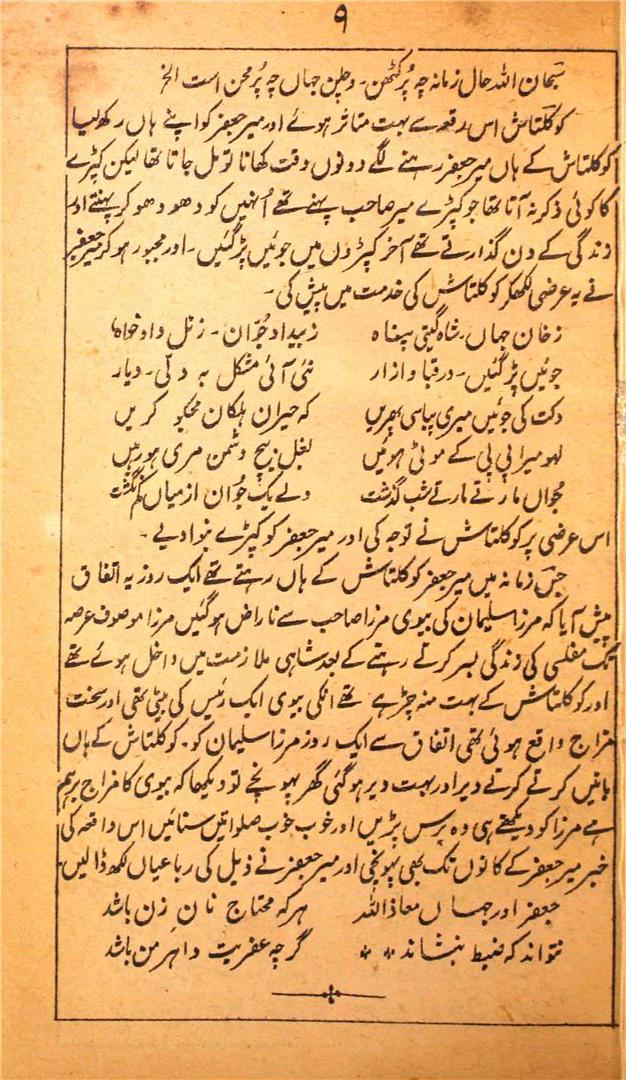 ۹
سبحان اللہ حال زمانہ چہ پُر کٹھن۔ وچلن جہاں چہ پُر محن است الخ
کوکلتاش اس رقعہ سے بہت متاثر ہوئے اور میر جعفر کو اپنے ہاں رکھ لیا
کوکلتاش کے ہاں میر جعفر رہنے لگے دونوں وقت کھانا تو مل جاتا تھا لیکن کپڑے
کا کوئی ذکر نہ آتا تھا جو کپڑے میر صاحب پہنے تھے اُنہیں کو دھو دھو کر پہنتے اور
زندگی کے دن گذارتے تھے آخر کپڑوں میں جوئیں پڑ گئیں۔ اور مجبور ہو کر میر جعفر
نے یہ عرضی لکھکر کوکلتاش کی خدمت میں پیش کی۔
زخان جہاں۔ شاہ گیتی پناہ زبیداد جوّان۔ زٹل داد خواہ
جوئیں پڑ گئیں۔ در قبا و ازار نئی آئی مشکل بہ دلّی۔ دیار
دکت کی جوئیں میری پیاسی پھریں کہ حیران ہلکان مجکو کریں
لہو میرا پی پی کے موٹی ہوئیں بغل بیچ دشمن مری ہو رہیں
مجواں مارتے مارتے شب گذشت ولے یک جُوان از میاں کم نگشت
اس عرضی پر کوکلتاش نے توجہ کی اور میر جعفر کو کپڑے بنوا دیے۔
جس زمانہ میں میر جعفر کوکلتاش کے ہاں رہتے تھے ایک روز یہ اتفاق
پیش آیا کہ مرزا سلیمان کی بیوی مرزا صاحب سے ناراض ہو گئیں مرزا موصوف عرصہ
تک مفلسی کی زندگی بسر کرتے رہنے کے بعد شاہی ملازمت میں داخل ہوئے تھے
اور کوکلتاش کے بہت منہ چڑہے تھے انکی بیوی ایک رئیس کی بیٹی تھی اور سخت
مزاج واقع ہوئی تھی اتفاق سے ایک روز مرزا سلیمان کو۔ کوکلتاش کے ہاں
باتیں کرتے کرتے دیر اور بہت دیر ہو گئی گھر پہونچے تو دیکھا کہ بیوی کا مزاج برہم
ہے مرزا کو دیکھتے ہی وہ برس پڑیں اور خوب خوب صلواتیں سنائیں اس واقعہ کی
خبر میر جعفر کے کانوں تک بھی پہونچی اور میر جعفر نے ذیل کی رباعیاں لکھ ڈالیں۔
جعفر اور جہاں معاذ اللہ ہر کہ محتاج نان زن باشد
نتواند کہ ضبط بنشاند گرچہ عفریت و اہرمن باشد